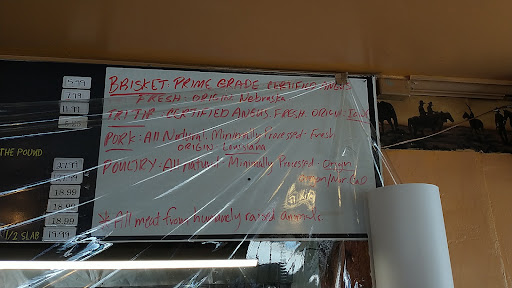 BRISKET: PRIME GRADE CERTIFIED ANGUS
FRESH - ORIGIN: Nebraska
TRI TIP - CERTIFIED ANGUS FRESH ORIGIN:
PORK: All Natural, Minimally Processed fresh
ORIGIN Louisiana
POULTRY: All natural Minimally Processed Origin
* All meat from humanely raised animals
15.99
7.99
11.99
THE POUND
18.99
18.99
18.99
1/2 SLAB 19.99